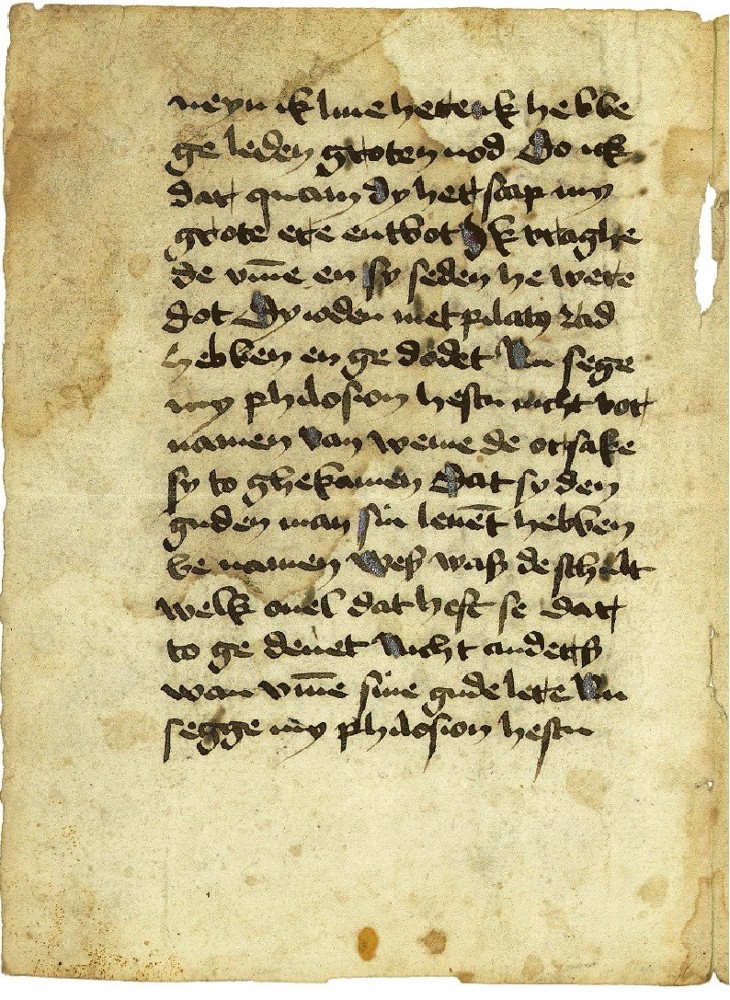 neyn ik liue here ik hebbe
ge leden groten nod Do ick
dar quam dy herscap my
grote ere entbot Ik vraghe
de vm̄e en sy seden he were
dot Dy ioden met pilatꝰ rad
hebben en ge dodet Nu sege
my philosion hestu nicht vor
namen Van weme de orsake
sy to ghekamen Dat sy den
guden man sin leuēt hebben
be namen Weß waß de schult
welk ouel dat heft se dar
to ge deuet Nicht anderß
wan vm̄e sine gude lere Nu
segge my philosion hestu